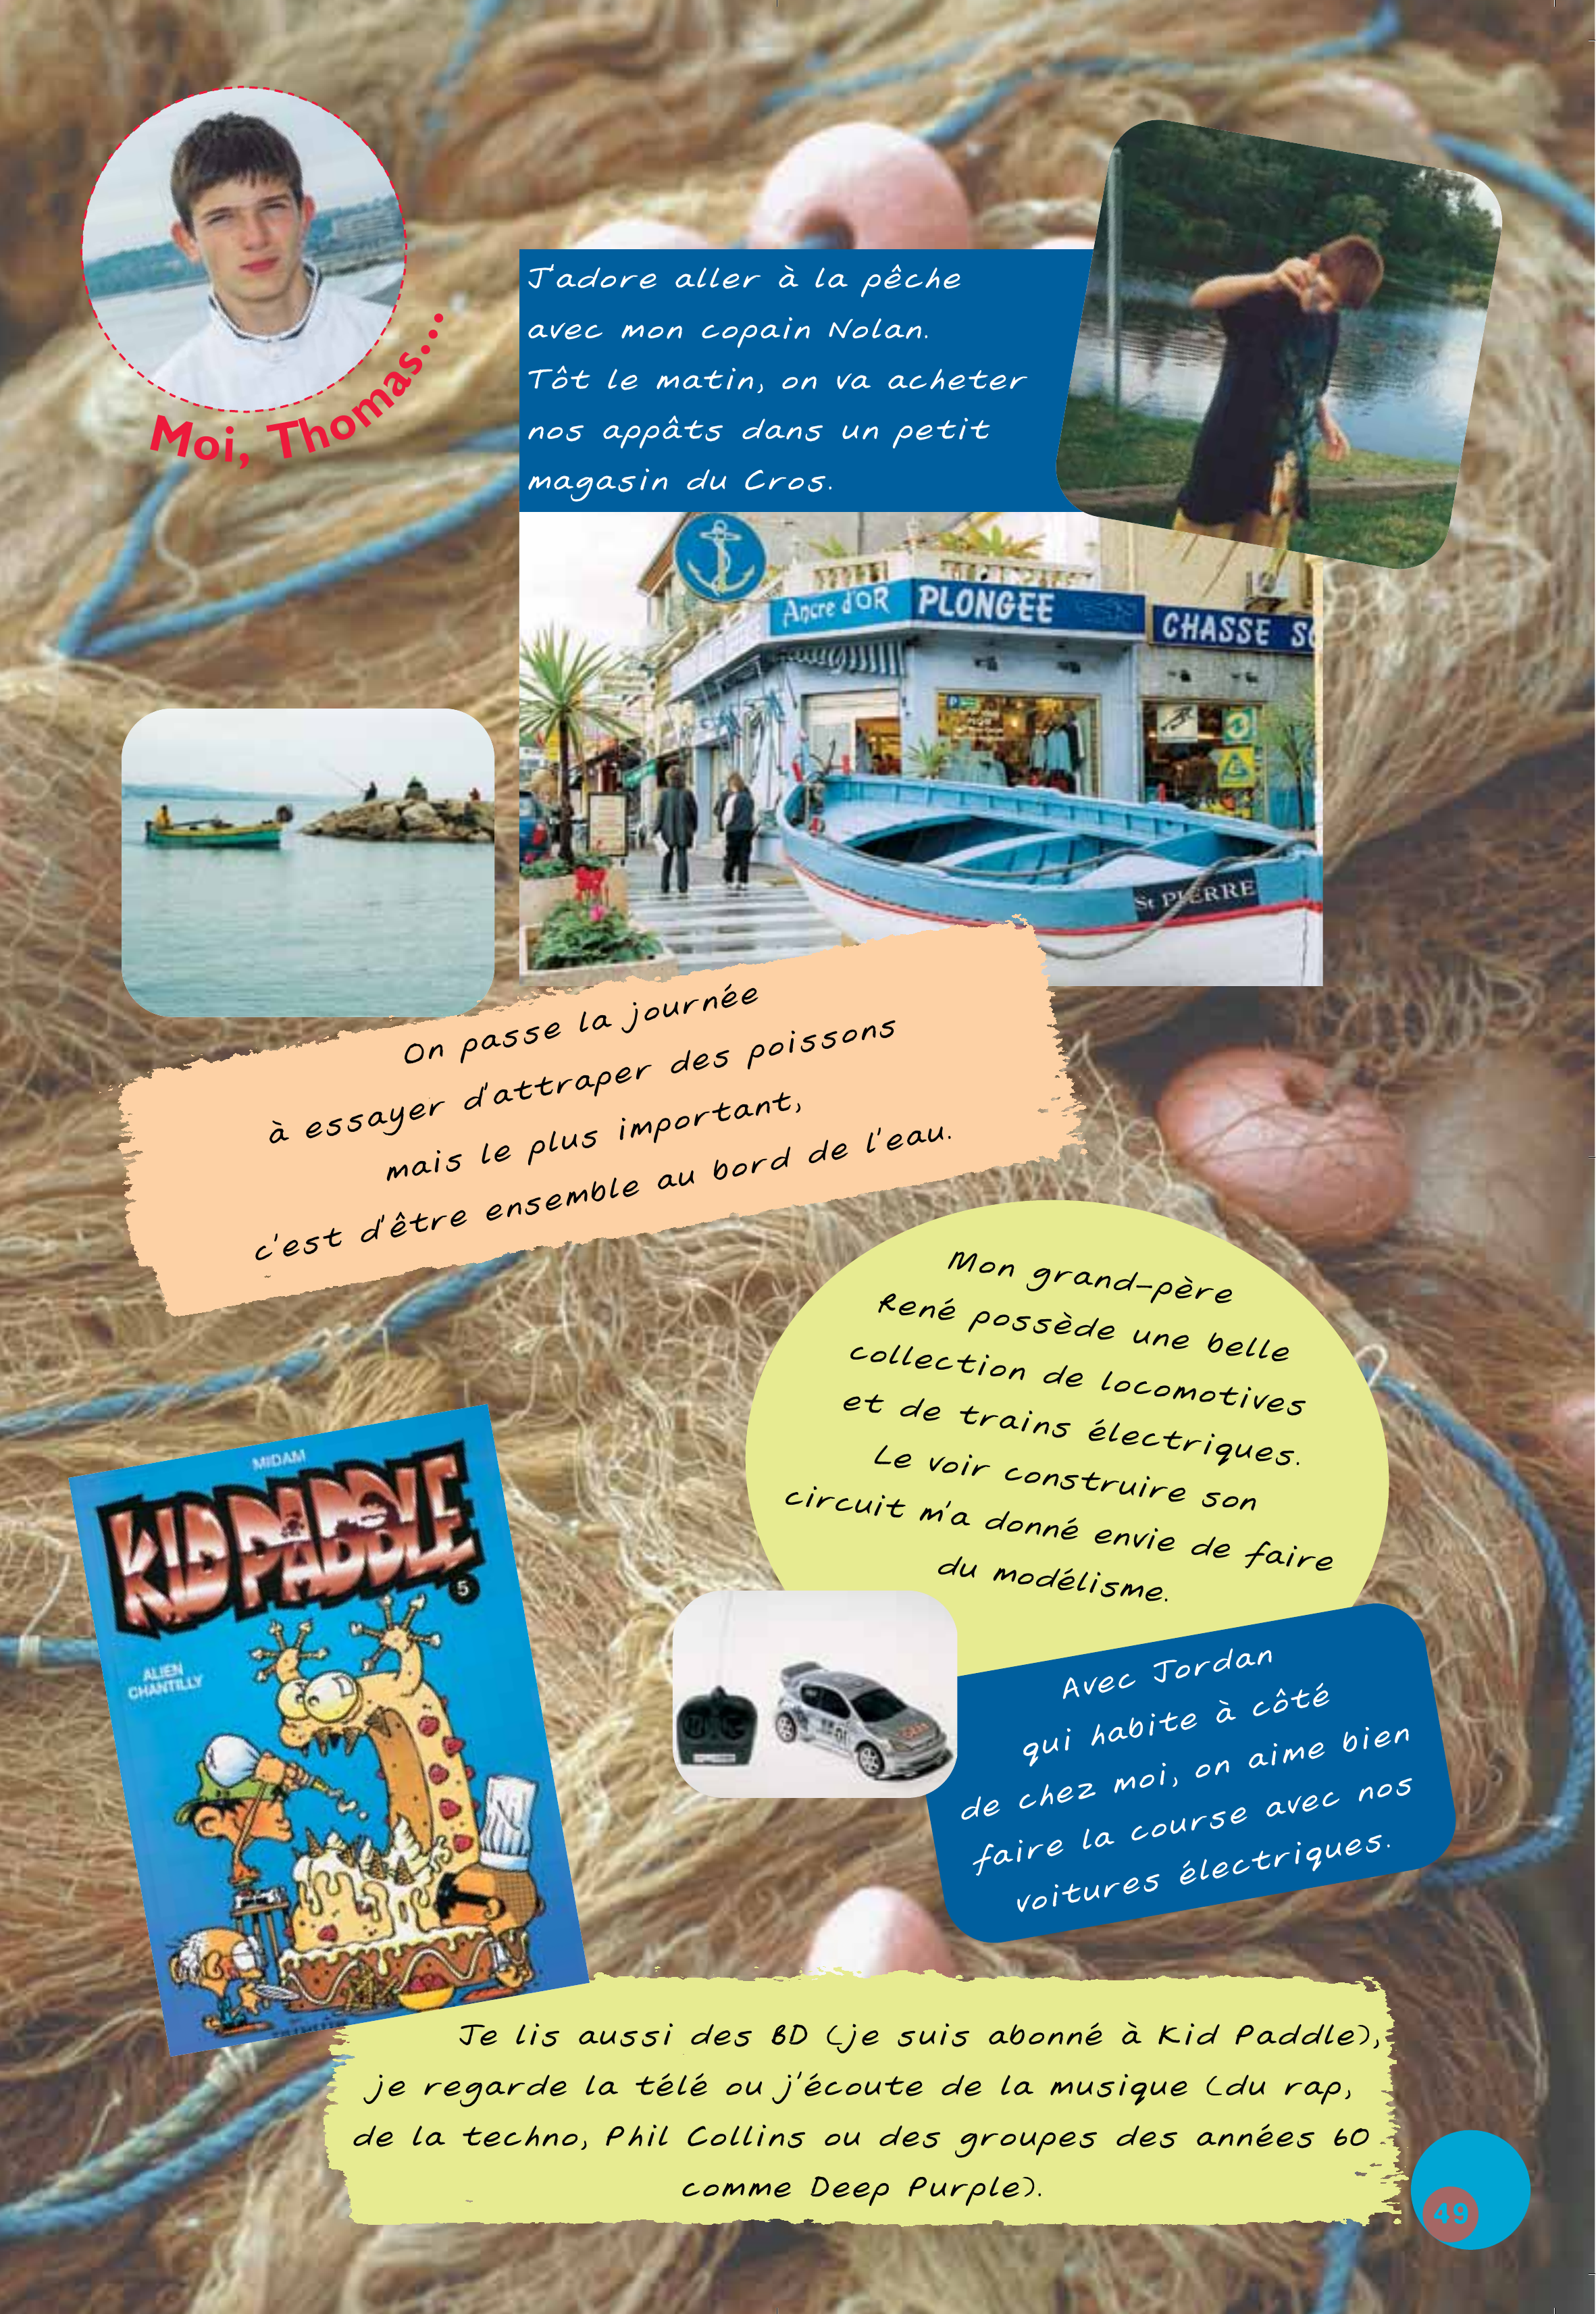 Moi, Thomas...
J'adore aller à la pêche
avec mon copain Nolan.
Tôt le matin, on va acheter
nos appâts dans un petit
magasin du Cros.
Ancre d'OR PLONGEE
CHASSE
St PIERRE
On passe la journée
à essayer d'attraper des poissons
mais le plus important,
c'est d'être ensemble au bord de l'eau.
Mon grand-père
René possède une belle
collection de locomotives
et de trains électriques.
Le voir construire son
circuit m'a donné envie de faire
du modélisme.
MIDAM
KID PADDLE
5
ALIEN
CHANTILLY
Avec Jordan
qui habite à côté
de chez moi, on aime bien
faire la course avec nos
voitures électriques.
Je lis aussi des BD (je suis abonné à Kid Paddle),
je regarde la télé ou j'écoute de la musique (du rap,
de la techno, Phil Collins ou des groupes des années 60
comme Deep Purple).
49